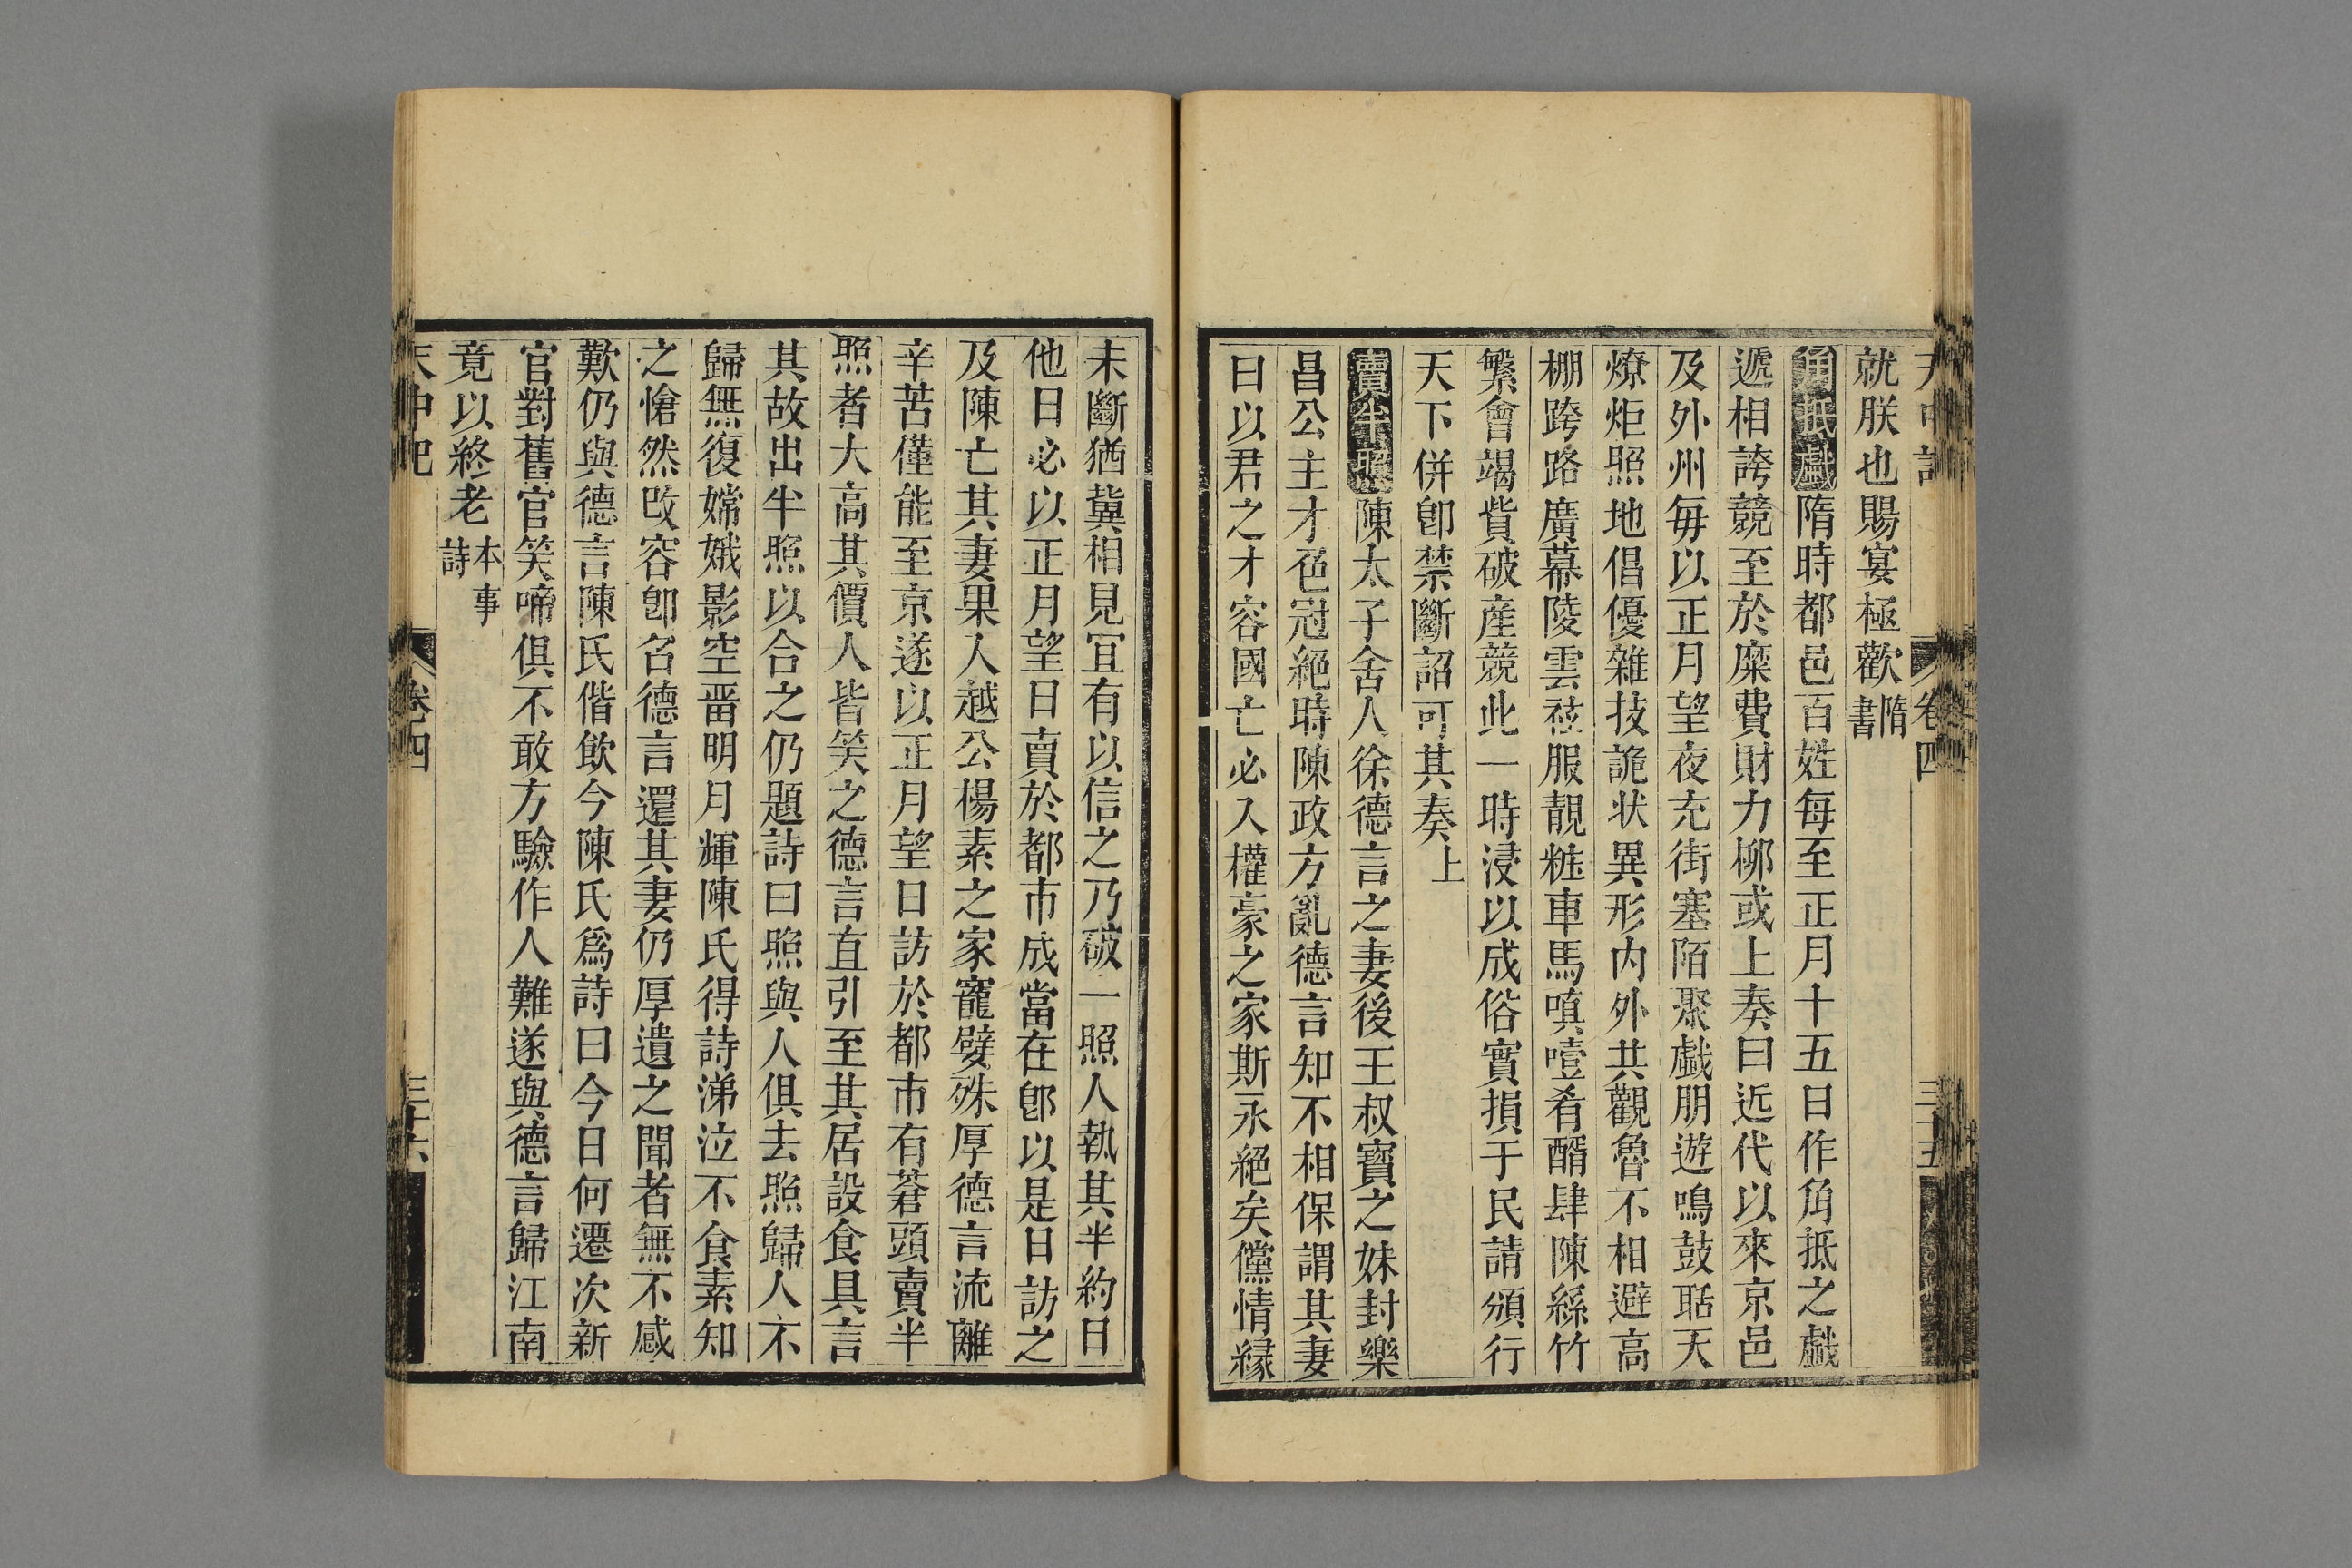 天中記 卷四 三十五
就朕也賜宴極歡隋書
角抵戲隋時都邑百姓每至正月十五日作角抵之戲
遞相誇競至於糜費財力柳或上奏曰近代以來京邑
及外州每以正月望夜充街塞陌聚戲朋遊鳴鼓聒天
燎炬照地倡優雜技詭状異形内外共觀魯不相避高
棚跨路廣幕陵雲袨服靚粧車馬嗔噎肴醑肆陳絲竹
繁會竭貲破産競此一時浸以成俗實損于民請頒行
天下併卽禁斷詔可其奏上
賣半照陳太子舍人徐德言之妻後王叔寶之妹封樂
昌公主才色冠絕時陳政方亂德言知不相保謂其妻
曰以君之才容國亡必入權豪之家斯永絕矣儻情縁
未斷猶冀相見宜有以信之乃破一照人執其半約曰
他日必以正月望日賣於都市成當在卽以是日訪之
及陳亡其妻果入越公楊素之家寵嬖殊厚德言流離
辛苦僅能至京遂以正月望日訪於都市有蒼頭賣半
照者大高其價人皆笑之德言直引至其居設食具言
其故出半照以合之仍題詩曰照與人俱去照歸人不
歸無復嫦娥影空畱明月輝陳氏得詩涕泣不食素知
之愴然改容卽召德言還其妻仍厚遺之聞者無不感
歎仍與德言陳氏偕飲今陳氏爲詩曰今日何遷次新
官對舊官笑啼俱不敢方驗作人難遂與德言歸江南
竟以終老本事詩
天中記 卷四 三十六